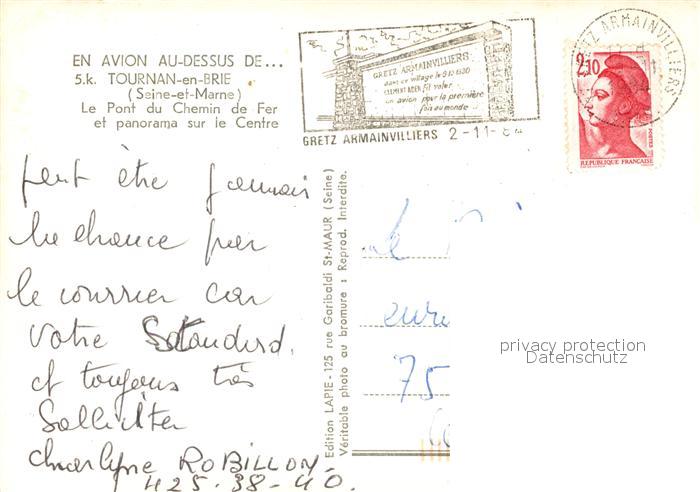 EN AVION AU-DESSUS DE...
5.k. TOURNAN-en-BRIE
(Seine-et-Marne)
Le Pont du Chemin de Fer
et panorama sur le Centre
GRETZ ARMAINVILLIERS
dans ce village le 9.10.1890
CLEMENT ADER fit voler
un avion pour la première
fois au monde
GRETZ ARMAINVILLIERS 2-11-
GRETZ ARMAINVILLIERS
2,10
POSTES
REPUBLIQUE FRANÇAISE
peut être
la chance par
le courrier car
votre Standard
et toujours très
Sollicitée
Charlyne ROBILLON
425-38-40.
Edition LAPIE-125 rue Garibaldi St-MAUR (Seine)
Véritable photo au bromure : Reprod. Interdite.
75
privacy protection
Datenschutz